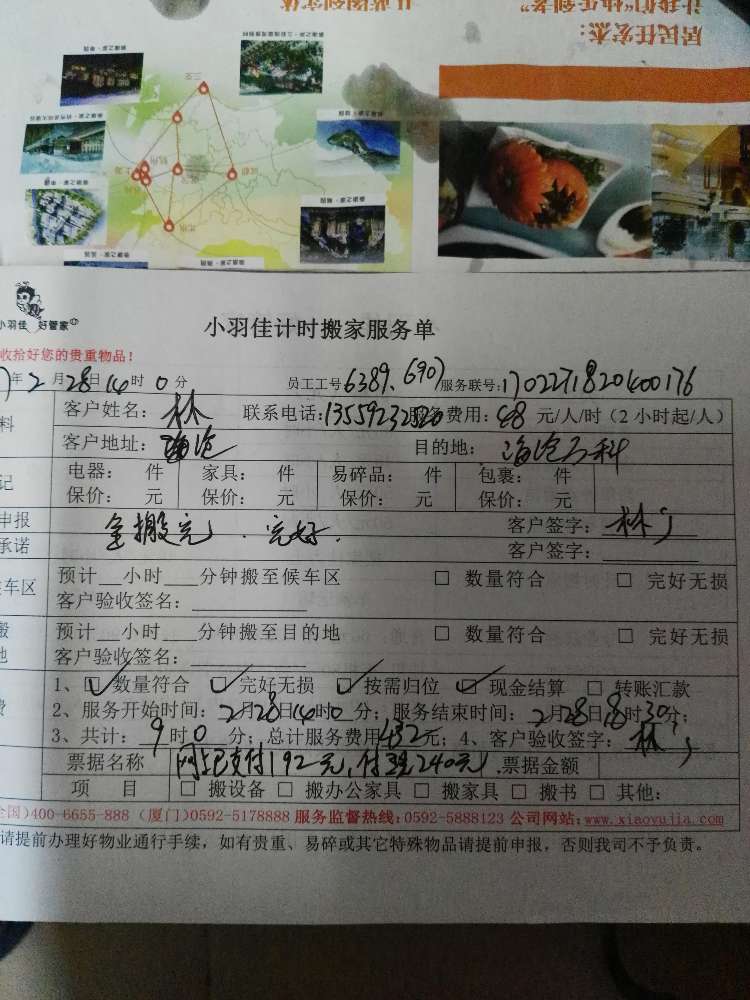 居民任宏杰：
让我们“快乐到老”
小羽佳 好管家
小羽佳计时搬家服务单
收拾好您的贵重物品！
年2月28日14时0分 员工工号6389、6907 服务联号:170227182040 0176
料 客户姓名：林 联系电话:1355923 服务费用：48 元/人/时（2小时起/人）
客户地址：海沧 目的地：海沧万科
记 电器： 件 家具： 件 易碎品： 件 包裹： 件
保价： 元 保价： 元 保价： 元 保价： 元
申报 全搬完．完好． 客户签字：林
承诺 客户签字：
车区 预计 小时 分钟搬至候车区 □ 数量符合 □ 完好无损
客户验收签名：
般 预计 小时 分钟搬至目的地 □ 数量符合 □ 完好无损
地 客户验收签名：
1、☑数量符合 ☑完好无损 ☑按需归位 ☑现金结算 □ 转账汇款
费 2、服务开始时间：2月28日14时0分；服务结束时间：2月28日8时30分；
3、共计：9时0分；总计服务费用432元；4、客户验收签字：林
票据名称 网上已支付192元，付现240元 票据金额
项 目 □ 搬设备 □ 搬办公家具 □ 搬家具 □ 搬书 □ 其他：
全国）400-6655-888（厦门）0592-5178888 服务监督热线：0592-5888123 公司网站：www.xiaoyujia.com
请提前办理好物业通行手续，如有贵重、易碎或其它特殊物品请提前申报，否则我司不予负责。